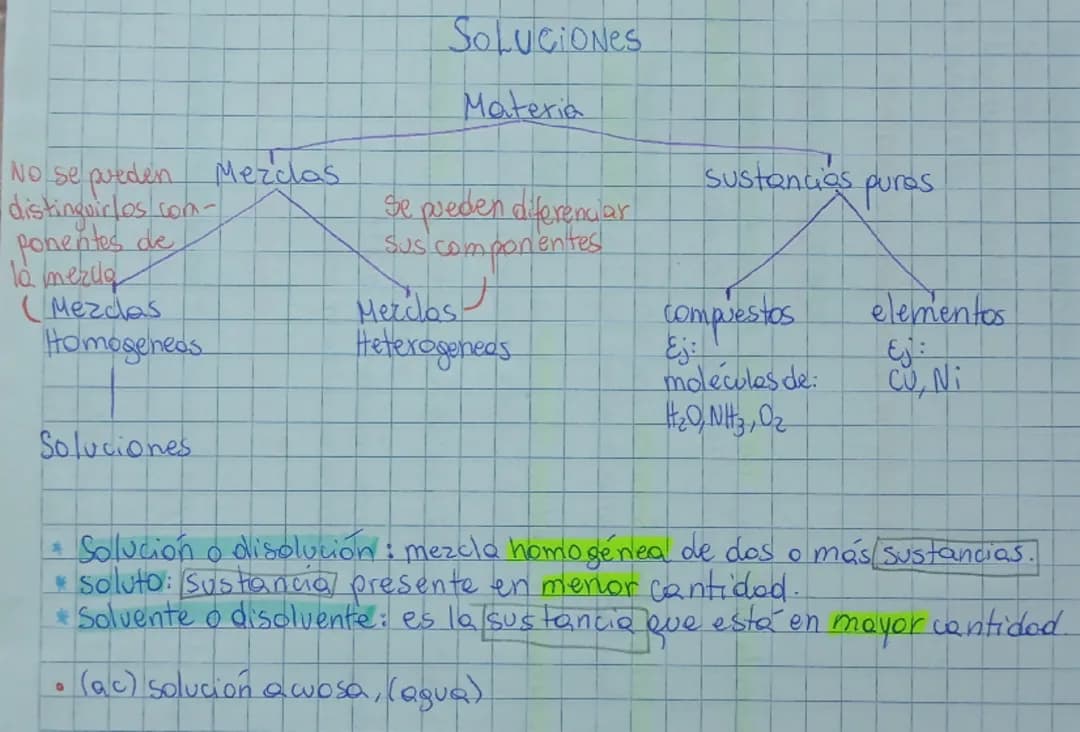 SOLUCIONES
Materia
No se pueden
distinguir los com-
ponentes de
la mezcla
Mezclas
Se pueden diferenciar
sus componentes
sustancias puras
Mezclas
Homogeneas
Mezclas
Heterogeneas
compuestos
Ej:
moléculas de:
H₂O, NH₃, O₂
elementos
Ej:
CU, Ni
Soluciones
* Solución o disolución: mezcla homogénea de dos o más sustancias.
* soluto: sustancia presente en menor cantidad.
* Solvente o disolvente: es la sustancia que está en mayor cantidad.
• (ac) solución acuosa, (agua)